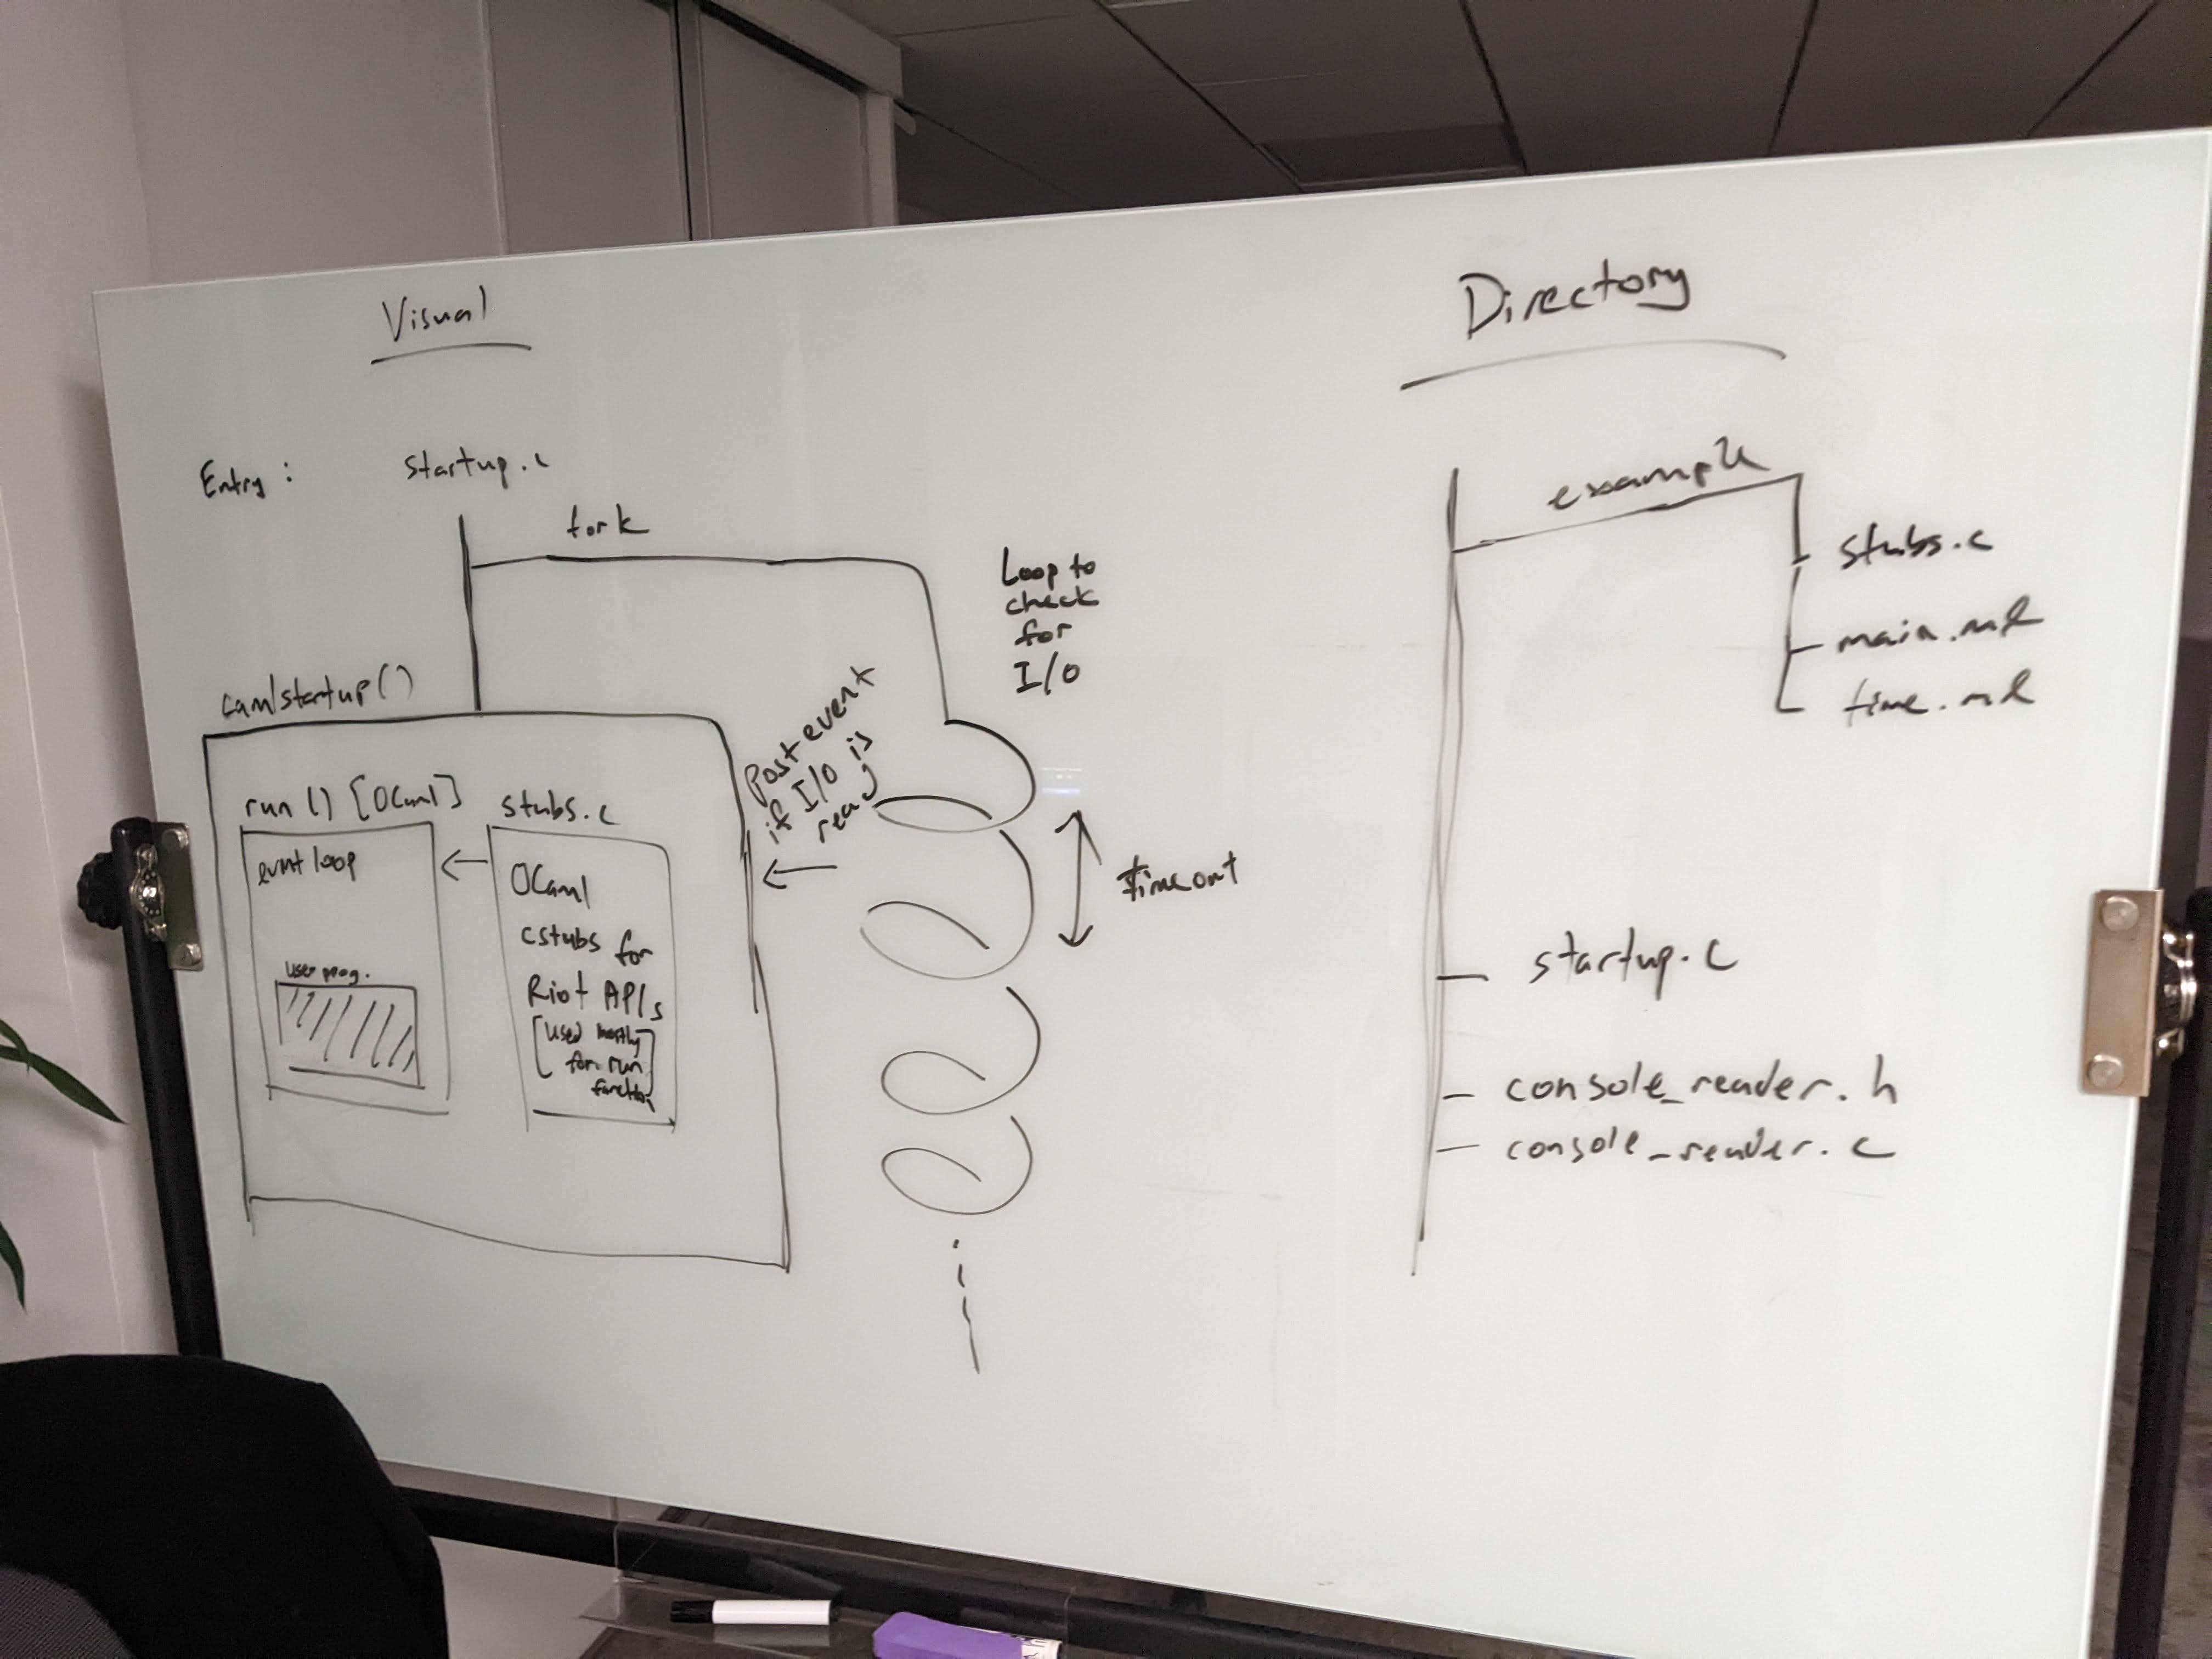 Visual
Entry: startup.c
fork
Loop to
check
for
I/O
camlstartup()
Post event
if I/O is
ready
run() [OCaml]
event loop
user prog.
stubs.c
OCaml
cstubs for
Riot APIs
[used mostly
for run
function]
timeout
Directory
example
stubs.c
main.ml
time.ml
startup.c
console_reader.h
console_reader.c